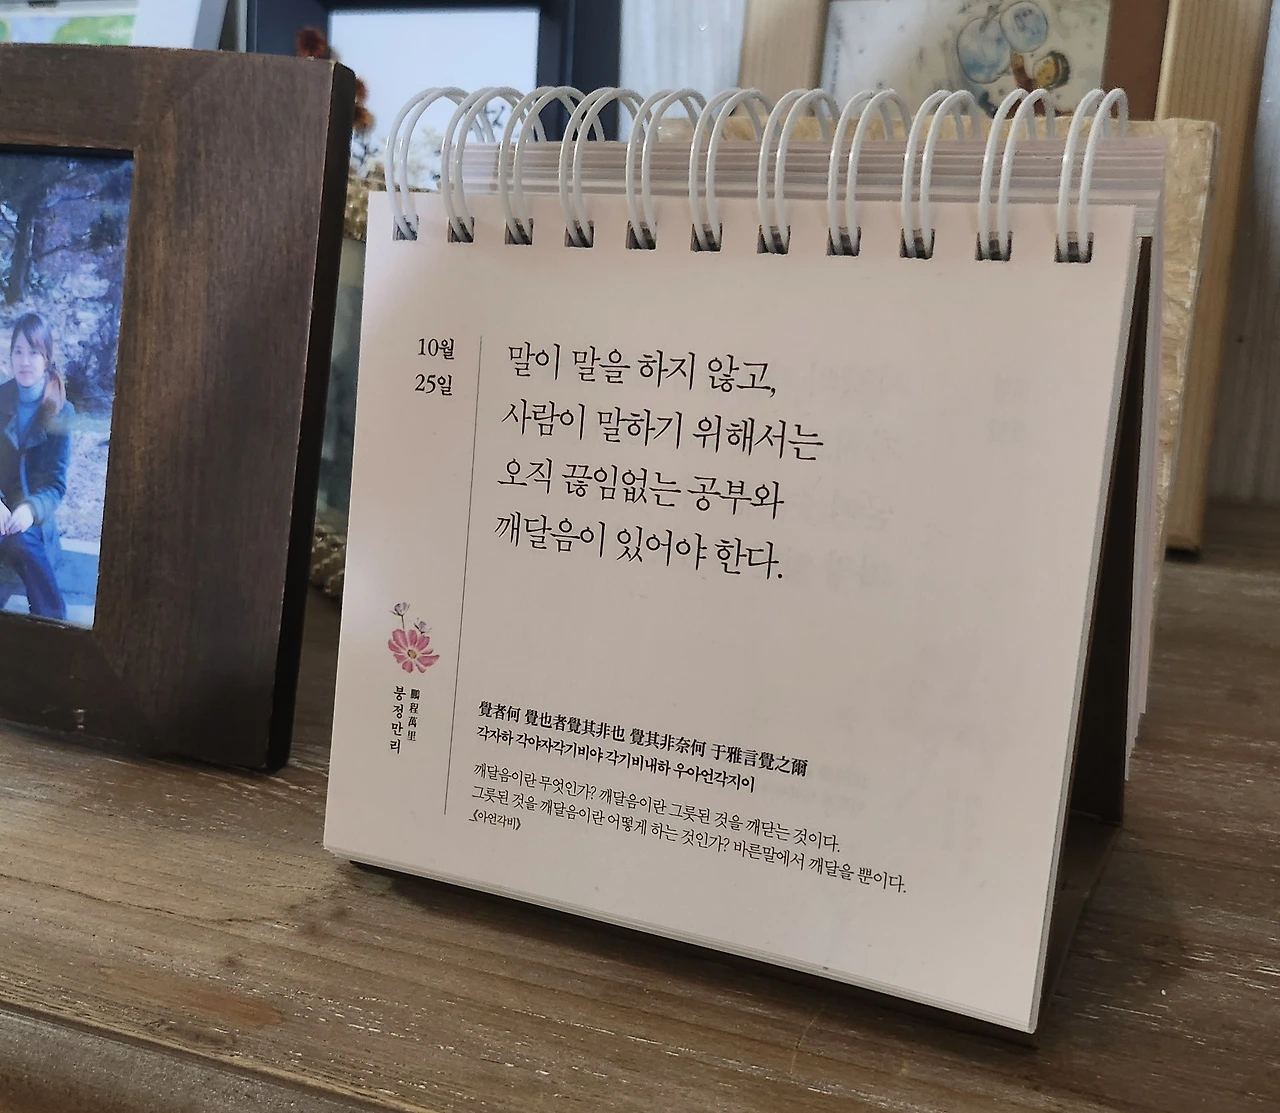 10월
25일
말이 말을 하지 않고,
사람이 말하기 위해서는
오직 끊임없는 공부와
깨달음이 있어야 한다.
鵬程萬里
붕정만리
覺者何 覺也者覺其非也 覺其非奈何 于雅言覺之爾
각자하 각야자각기비야 각기비내하 우아언각지이
깨달음이란 무엇인가? 깨달음이란 그릇된 것을 깨닫는 것이다.
그릇된 것을 깨달음이란 어떻게 하는 것인가? 바른말에서 깨달을 뿐이다.
_《아언각비》